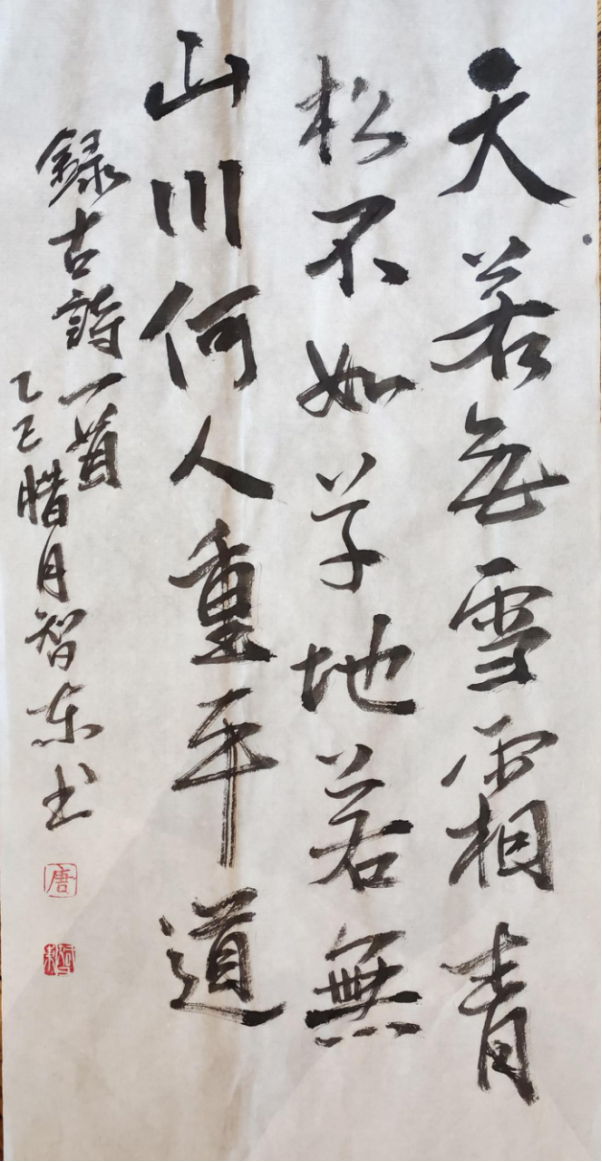 天若无雪霜青
松不如草地若無
山川何人重平道
録古詩一首
乙巳腊月智东书
唐